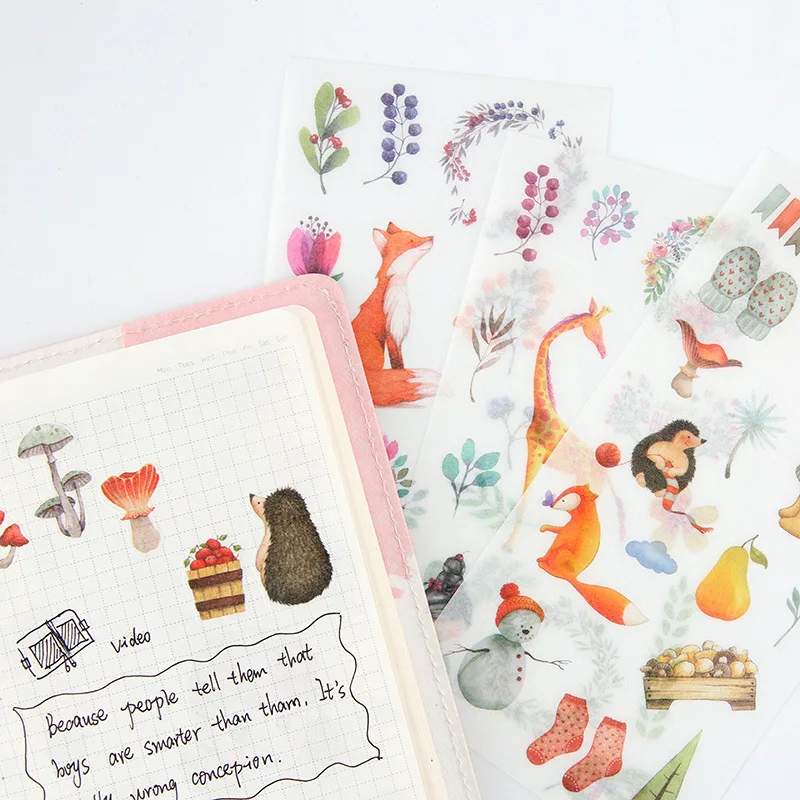 Mon Tues Wed Thu Fri Sat Sun
video
Because people tell them that
boys are smarter than tham. It's
wrong concepion.